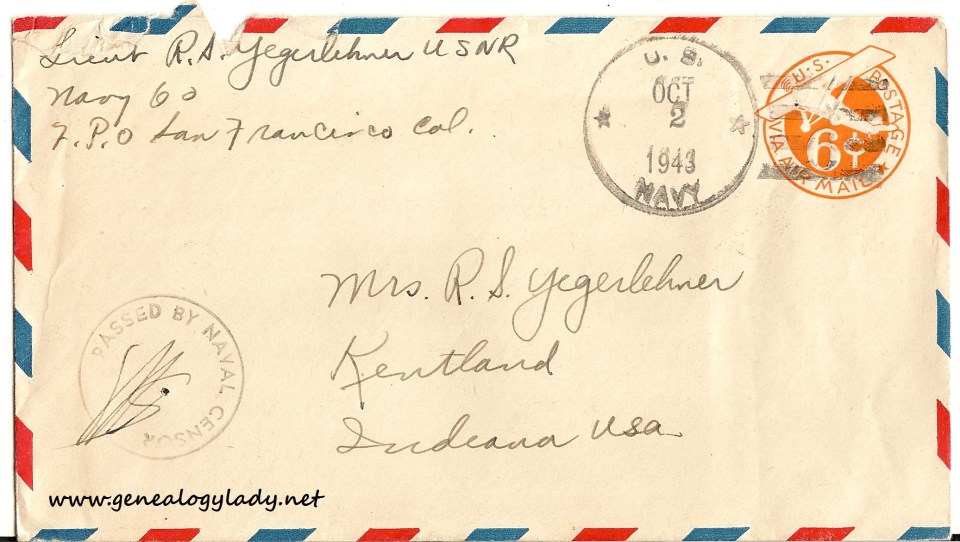 Lieut R.S. Yegerlehner USNR
Navy 60
F.P.O San Francisco Cal.
U. S.
OCT
2
1943
NAVY
U.S. POSTAGE
6¢
VIA AIR MAIL
Mrs. R. S. Yegerlehner
Kentland
Indiana USA
PASSED BY NAVAL CENSOR
www.genealogylady.net